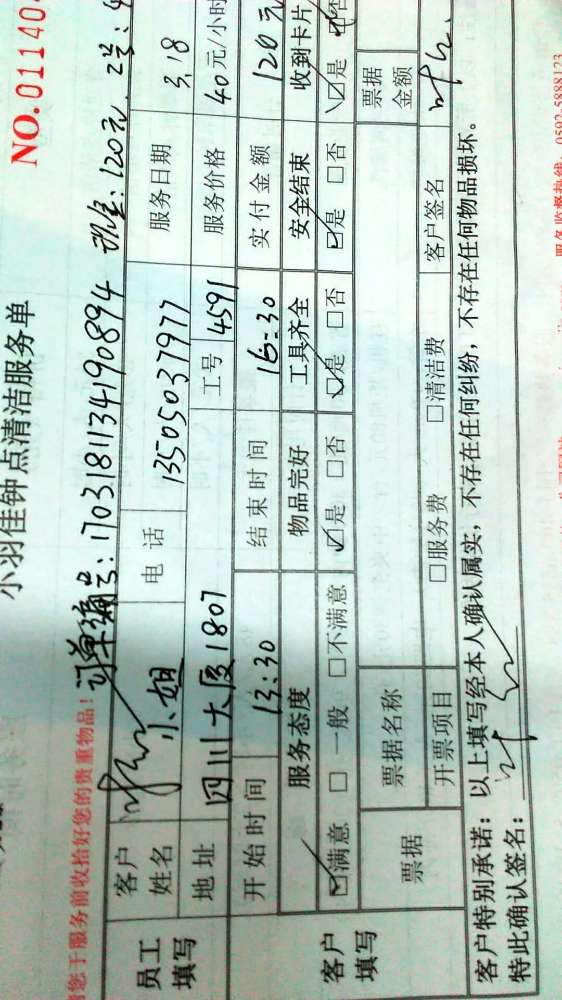 小羽佳钟点清洁服务单
NO.011404
您于服务前收拾好您的贵重物品！
订单编号：1703181134190894 现金：120元.工号：
员工填写 客户姓名 小姐 电话 13505037977 服务日期 3.18
地址 四川大厦1807 工号 4591 服务价格 40元/小时
客户填写 开始时间 13:30 结束时间 16:30 实付金额 120元
服务态度 物品完好 工具齐全 安全结束 收到卡片
☑满意 □一般 □不满意 ☑是 □否 ☑是 □否 ☑是 □否 ☑是 □否
票据 票据名称 票据金额
开票项目 □服务费 □清洁费 客户签名
客户特别承诺：以上填写经本人确认属实，不存在任何纠纷，不存在任何物品损坏。
特此确认签名：
服务监督热线：0592-5888123